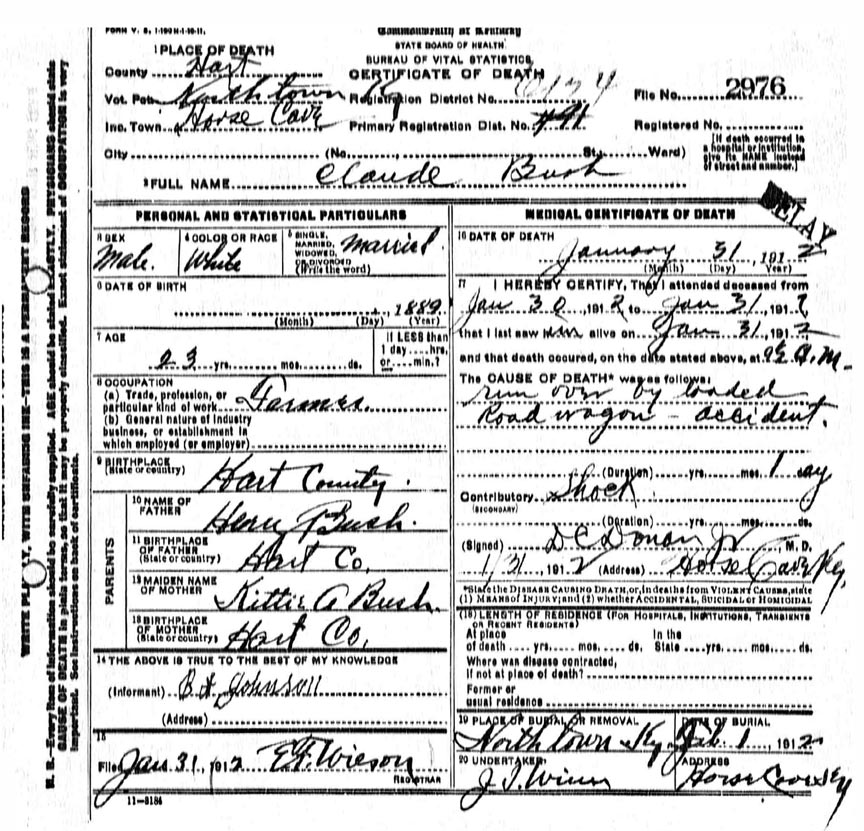 FORM V. S. 1-100M-1-10-11.
Commonwealth of Kentucky
STATE BOARD OF HEALTH
BUREAU OF VITAL STATISTICS
CERTIFICATE OF DEATH
1 PLACE OF DEATH
County Hart
Vot. Pct. North town Ky Registration District No. File No. 2976
Inc. Town Horse Cave Primary Registration Dist. No. 491 Registered No.
City (No. St.; Ward)
[If death occurred in a hospital or institution, give its NAME instead of street and number.]
2 FULL NAME Claude Bush
DELAY
PERSONAL AND STATISTICAL PARTICULARS
3 SEX Male
4 COLOR OR RACE White
5 SINGLE, MARRIED, WIDOWED, OR DIVORCED (Write the word) Married
6 DATE OF BIRTH
, 1889
(Month) (Day) (Year)
7 AGE
23 yrs. mos. ds.
If LESS than 1 day hrs. or min.?
8 OCCUPATION
(a) Trade, profession, or
particular kind of work Farmer
(b) General nature of industry
business, or establishment in
which employed (or employer)
9 BIRTHPLACE
(State or country) Hart County.
PARENTS
10 NAME OF FATHER Henry Bush.
11 BIRTHPLACE OF FATHER (State or country) Hart Co.
12 MAIDEN NAME OF MOTHER Kittie A Bush
13 BIRTHPLACE OF MOTHER (State or country) Hart Co.
14 THE ABOVE IS TRUE TO THE BEST OF MY KNOWLEDGE
(Informant) Johnson
(Address)
15
Filed Jan 31, 1912
REGISTRAR
11-3184
MEDICAL CERTIFICATE OF DEATH
16 DATE OF DEATH
January 31 1912
(Month) (Day) (Year)
17 I HEREBY CERTIFY, That I attended deceased from
Jan 30, 1912 to Jan 31, 1912
that I last saw him alive on Jan 31, 1912
and that death occured, on the date stated above, at A. M.
The CAUSE OF DEATH* was as follows:
run over by loaded
Road wagon - accident.
(Duration) yrs. mos. 1 day
Contributory Shock
(SECONDARY)
(Duration) yrs. mos. ds.
(Signed) D C Donan Jr, M. D.
1/31, 1912 (Address) Horse Cave Ky.
*State the DISEASE CAUSING DEATH, or, in deaths from VIOLENT CAUSES, state
(1) MEANS of INJURY; and (2) whether ACCIDENTAL, SUICIDAL or HOMICIDAL
(18) LENGTH OF RESIDENCE (FOR HOSPITALS, INSTITUTIONS, TRANSIENTS
OR RECENT RESIDENTS)
At place of death yrs. mos. ds. In the State yrs. mos. ds.
Where was disease contracted,
If not at place of death?
Former or
usual residence
19 PLACE OF BURIAL OR REMOVAL North town Ky
DATE OF BURIAL Feb. 1, 1912
20 UNDERTAKER
ADDRESS Horse Cave Ky
WRITE PLAINLY, WITH UNFADING INK—THIS IS A PERMANENT RECORD
N. B.—Every item of information should be carefully supplied. AGE should be stated EXACTLY. PHYSICIANS should state
CAUSE OF DEATH in plain terms, so that it may be properly classified. Exact statement of OCCUPATION is very
important. See instructions on back of certificate.